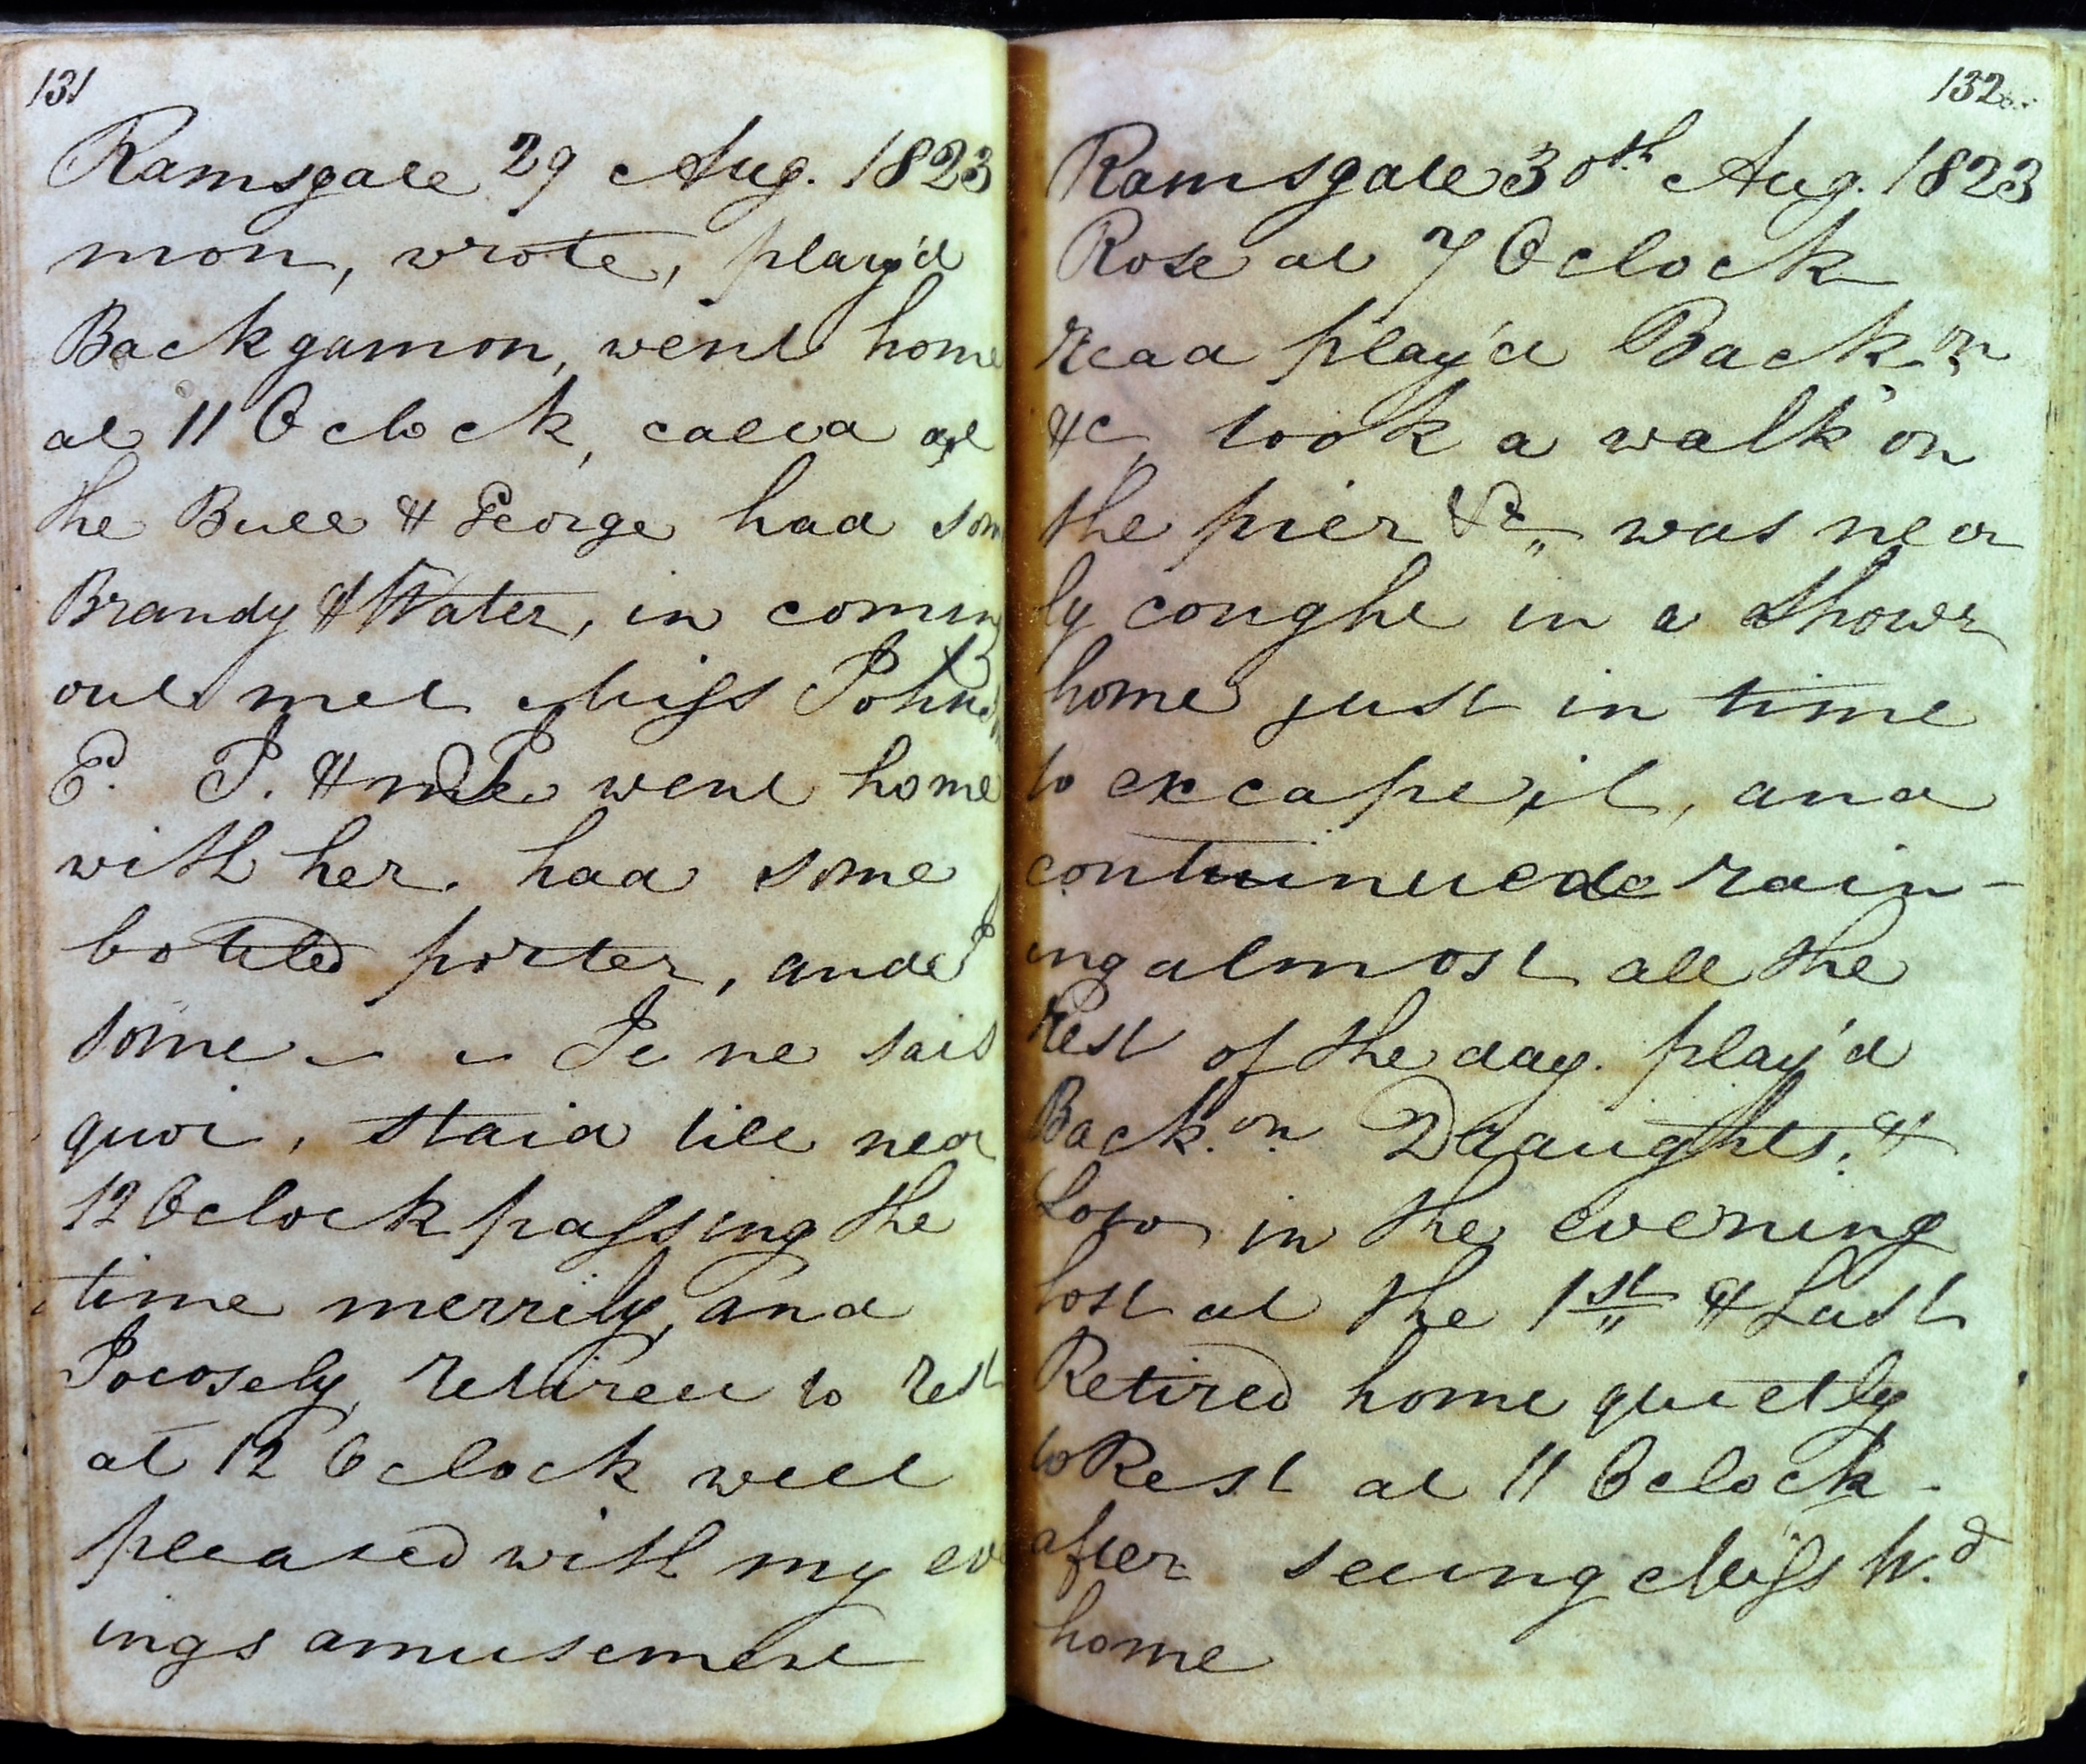 131
Ramsgate 29 Aug. 1823
mon, wrote, play'd
Backgamon, went home
at 11 Oclock, calld at
the Bull & George had som
Brandy & Water, in coming
out met Miss Johns
E. J. & went home
with her. had some
bottled porter, and
some - - Je ne sais
quoi, staid till near
12 Oclock passing the
time merrily, and
Jocosely, retired to rest
at 12 Oclock well
pleased with my eve
ings amusement
132
Ramsgate 30th Aug. 1823
Rose at 7 Oclock
read play'd Back.on
&c, took a walk on
the pier &c was near
ly caught in a Showr
home just in time
to excape it, and
continued rain-
ing almost all the
Rest of the day. play'd
Back.on Draughts, &
Loto in the evening
lost at the 1st & Last
Retired home quietly
to Rest at 11 Oclock.
after seeing Miss W.d
home